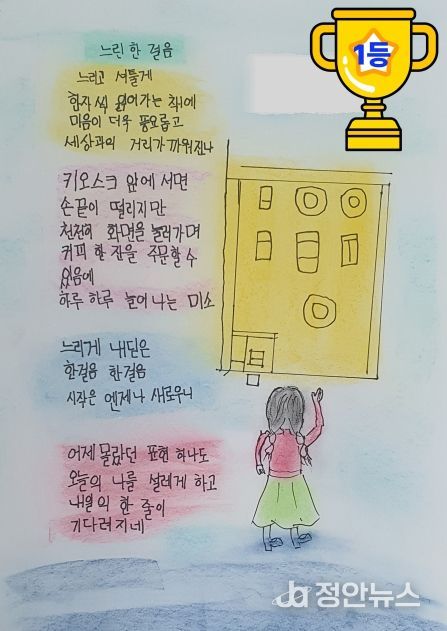 느린 한 걸음
1등
느리고 서툴게
한자 씩 읽어가는 책에
마음이 더욱 풍요롭고
세상과의 거리가 까워진나
키오스크 앞에 서면
손끝이 떨리지만
천천히 화면을 눌러가며
커피 한 잔을 주문할 수
있음에
하루 하루 늘어 나는 미소
느리게 내딛은
한걸음 한걸음
시작은 엔제나 새로우니
어제 몰랐던 표현 하나도
오늘의 나를 설레게 하고
내일의 한 줄이
기다려지네
정안뉴스